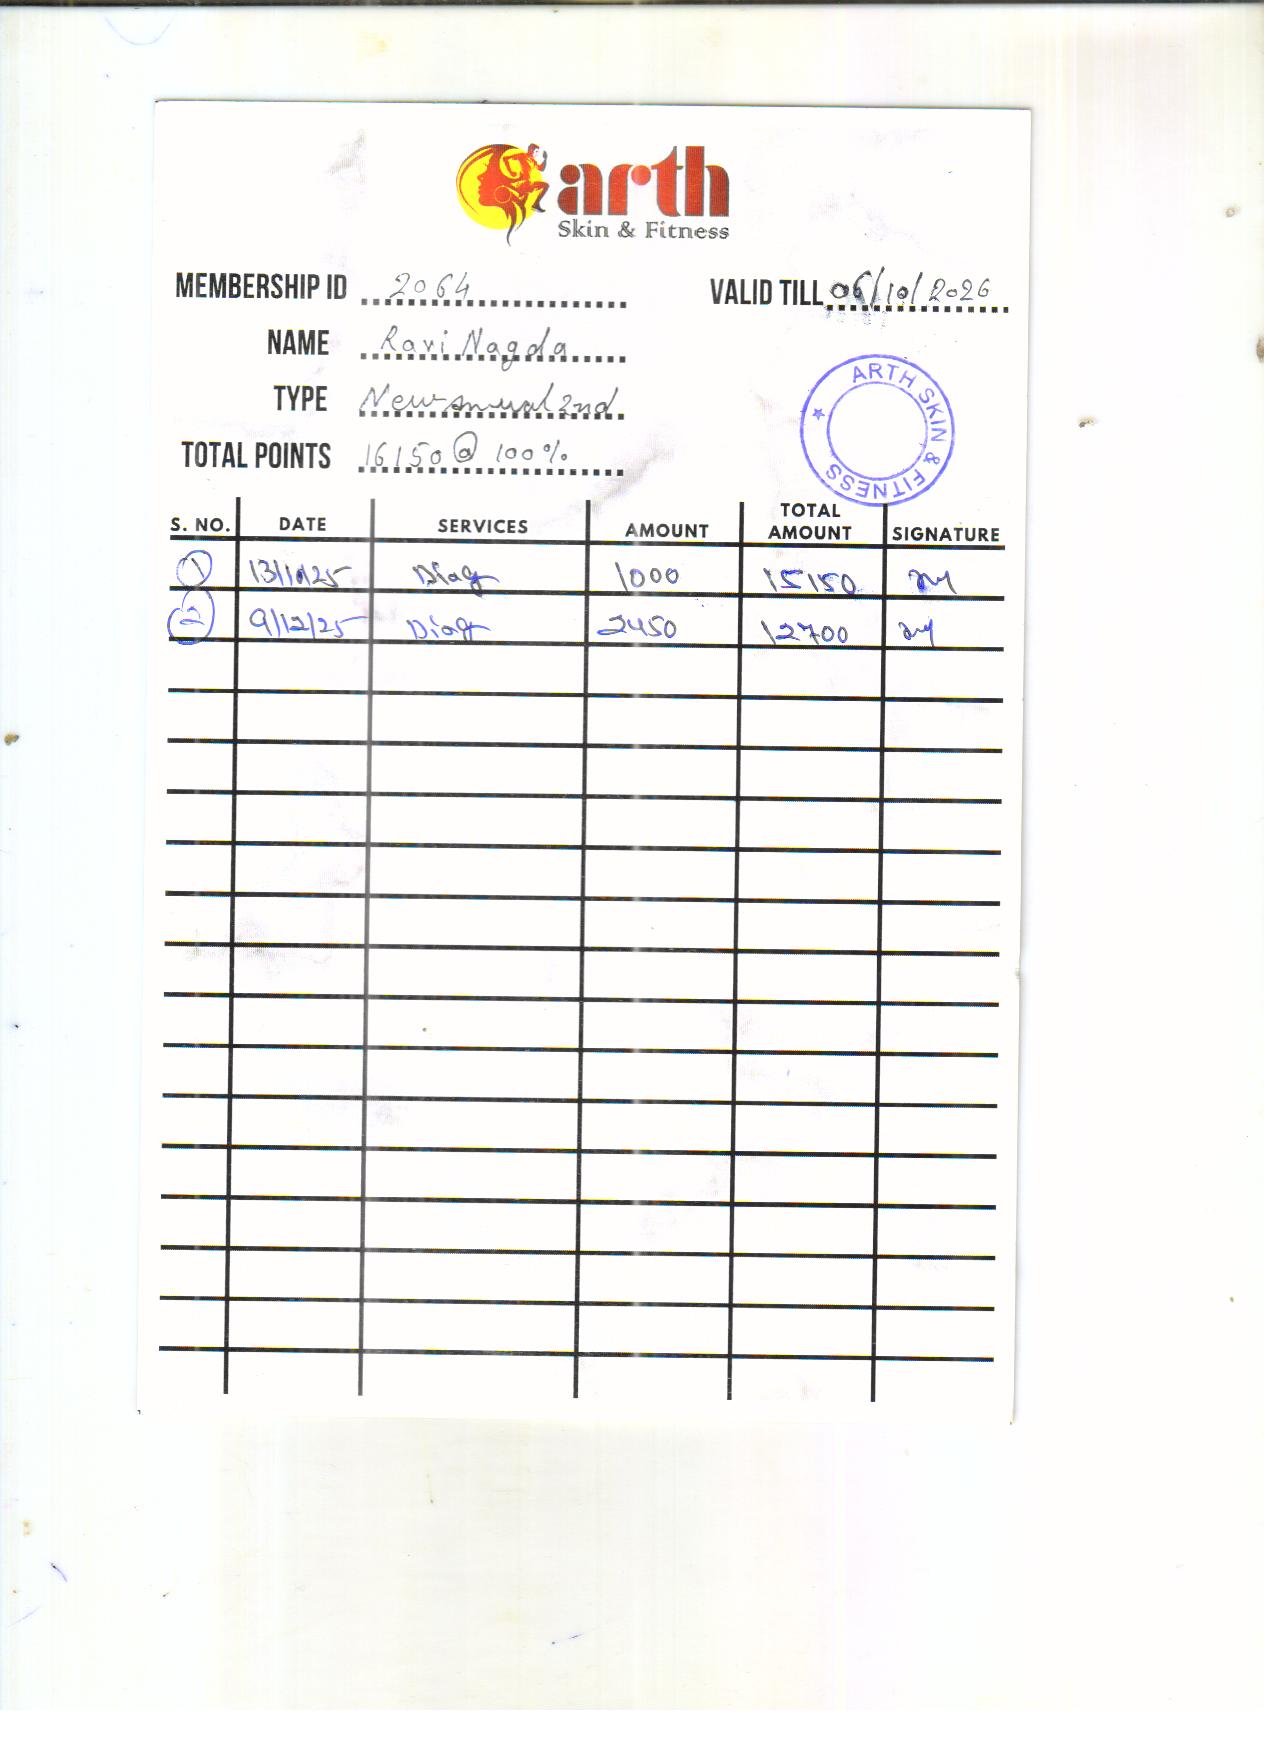 arth
Skin & Fitness
MEMBERSHIP ID 2064
VALID TILL 06/10/2026
NAME Ravi Nagda
TYPE New annual 2nd
TOTAL POINTS 16150 @ 100%
ARTH SKIN & FITNESS
S. NO. DATE SERVICES AMOUNT TOTAL AMOUNT SIGNATURE
1 13/10/25 Diag 1000 15150
2 9/12/25 Diag 2450 12700